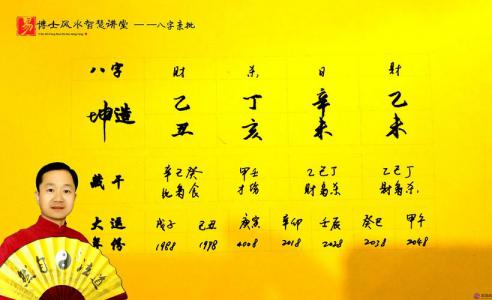 易 博士风水智慧讲堂 ——八字亲批
八字 财 杀 日 财
坤造 乙 丁 辛 乙
丑 亥 未 未
藏干 辛己癸 甲壬 乙己丁 乙己丁
比枭食 才伤 财枭杀 财枭杀
大运 戊子 己丑 庚寅 辛卯 壬辰 癸巳 甲午
年份 1988 1998 4008 2018 2028 2038 2048